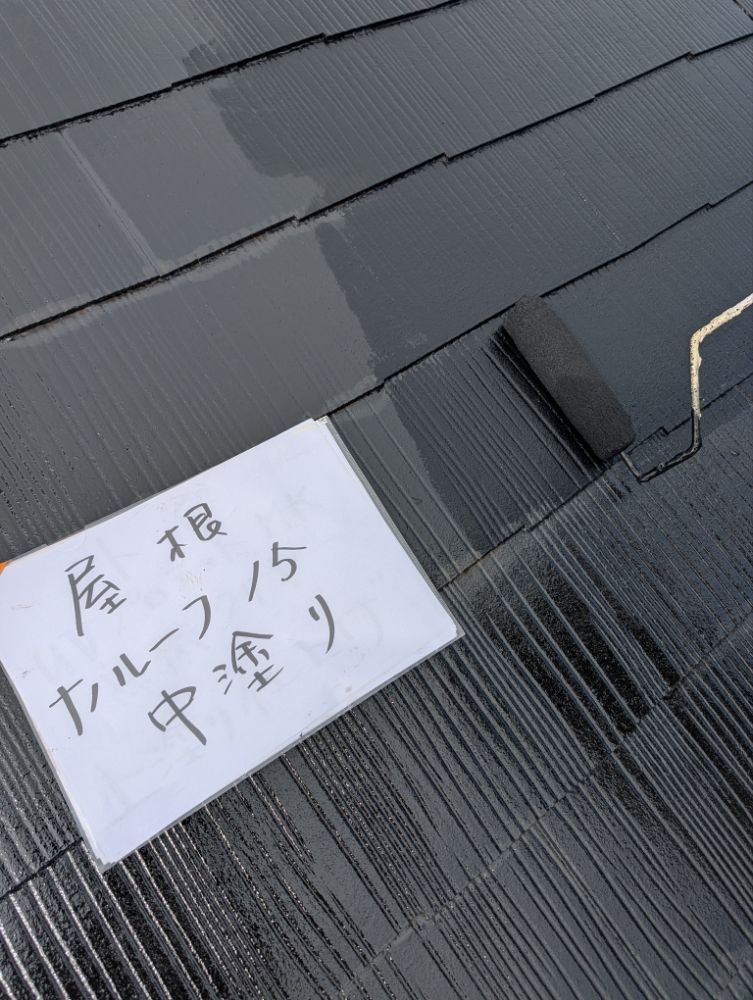 屋根
ナノルーフ 15
中塗り